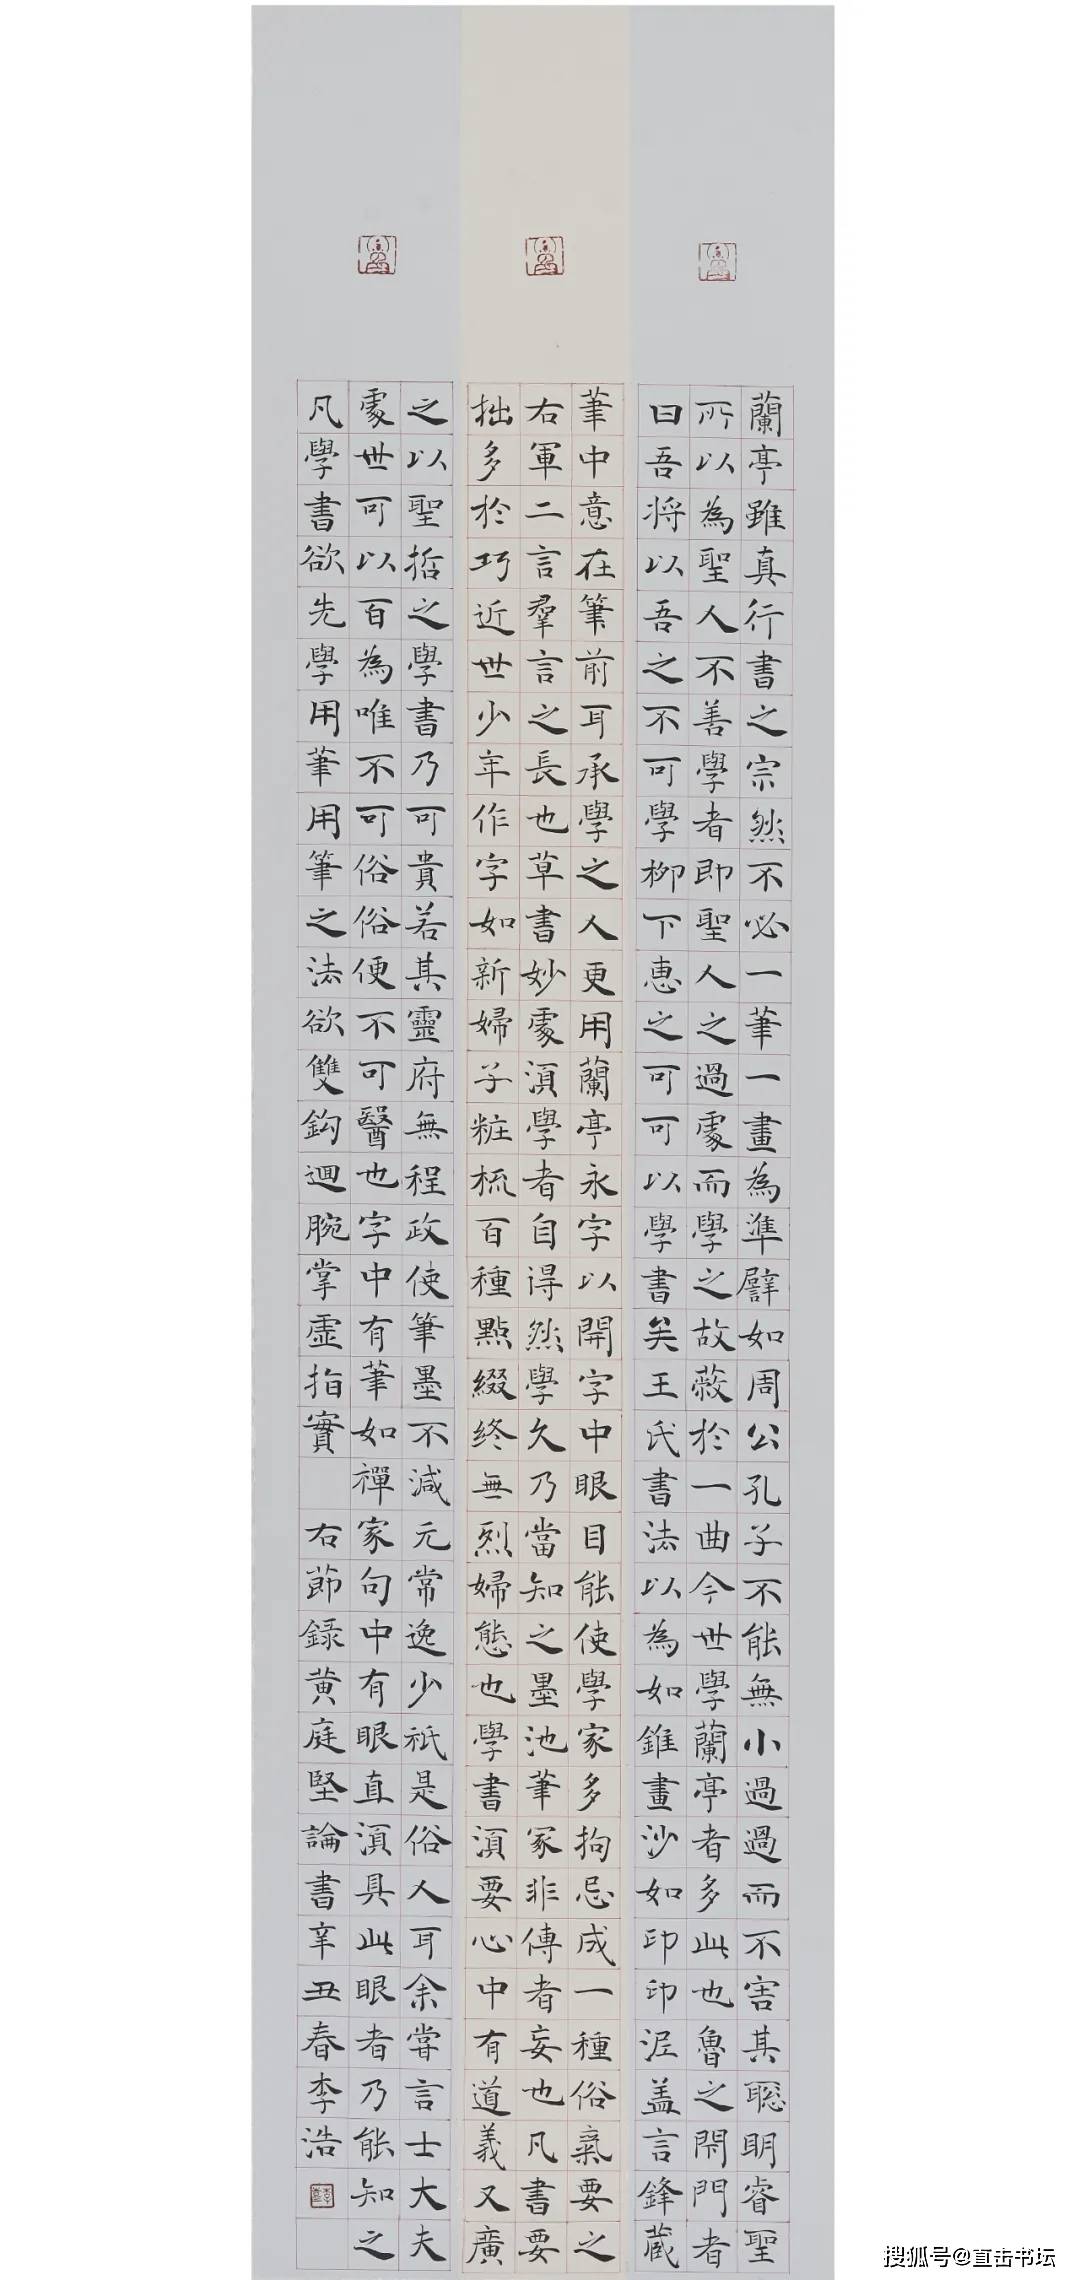 蘭亭雖真行書之宗然不必一筆一畫為準譬如周公孔子不能無小過過而不害其聰明睿聖
所以為聖人不善學者即聖人之過處而學之故蔽於一曲今世學蘭亭者多此也魯之閉門者
曰吾將以吾之不可學柳下惠之可可以學書矣王氏書法以為如錐畫沙如印印泥蓋言鋒藏
筆中意在筆前耳承學之人更用蘭亭永字以開字中眼目能使學家多拘忌成一種俗氣要之
右軍二言羣言之長也草書妙處須學者自得然學久乃當知之墨池筆冢非傳者妄也凡書要
拙多於巧近世少年作字如新婦子粧梳百種點綴終無烈婦態也學書須要心中有道義又廣
之以聖哲之學書乃可貴若其靈府無程政使筆墨不減元常逸少祇是俗人耳余嘗言士大夫
處世可以百為唯不可俗俗便不可醫也字中有筆如禪家句中有眼直須具此眼者乃能知之
凡學書欲先學用筆用筆之法欲雙鈎迴腕掌虛指實 右節録黃庭堅論書辛丑春李浩
搜狐号@直击书坛